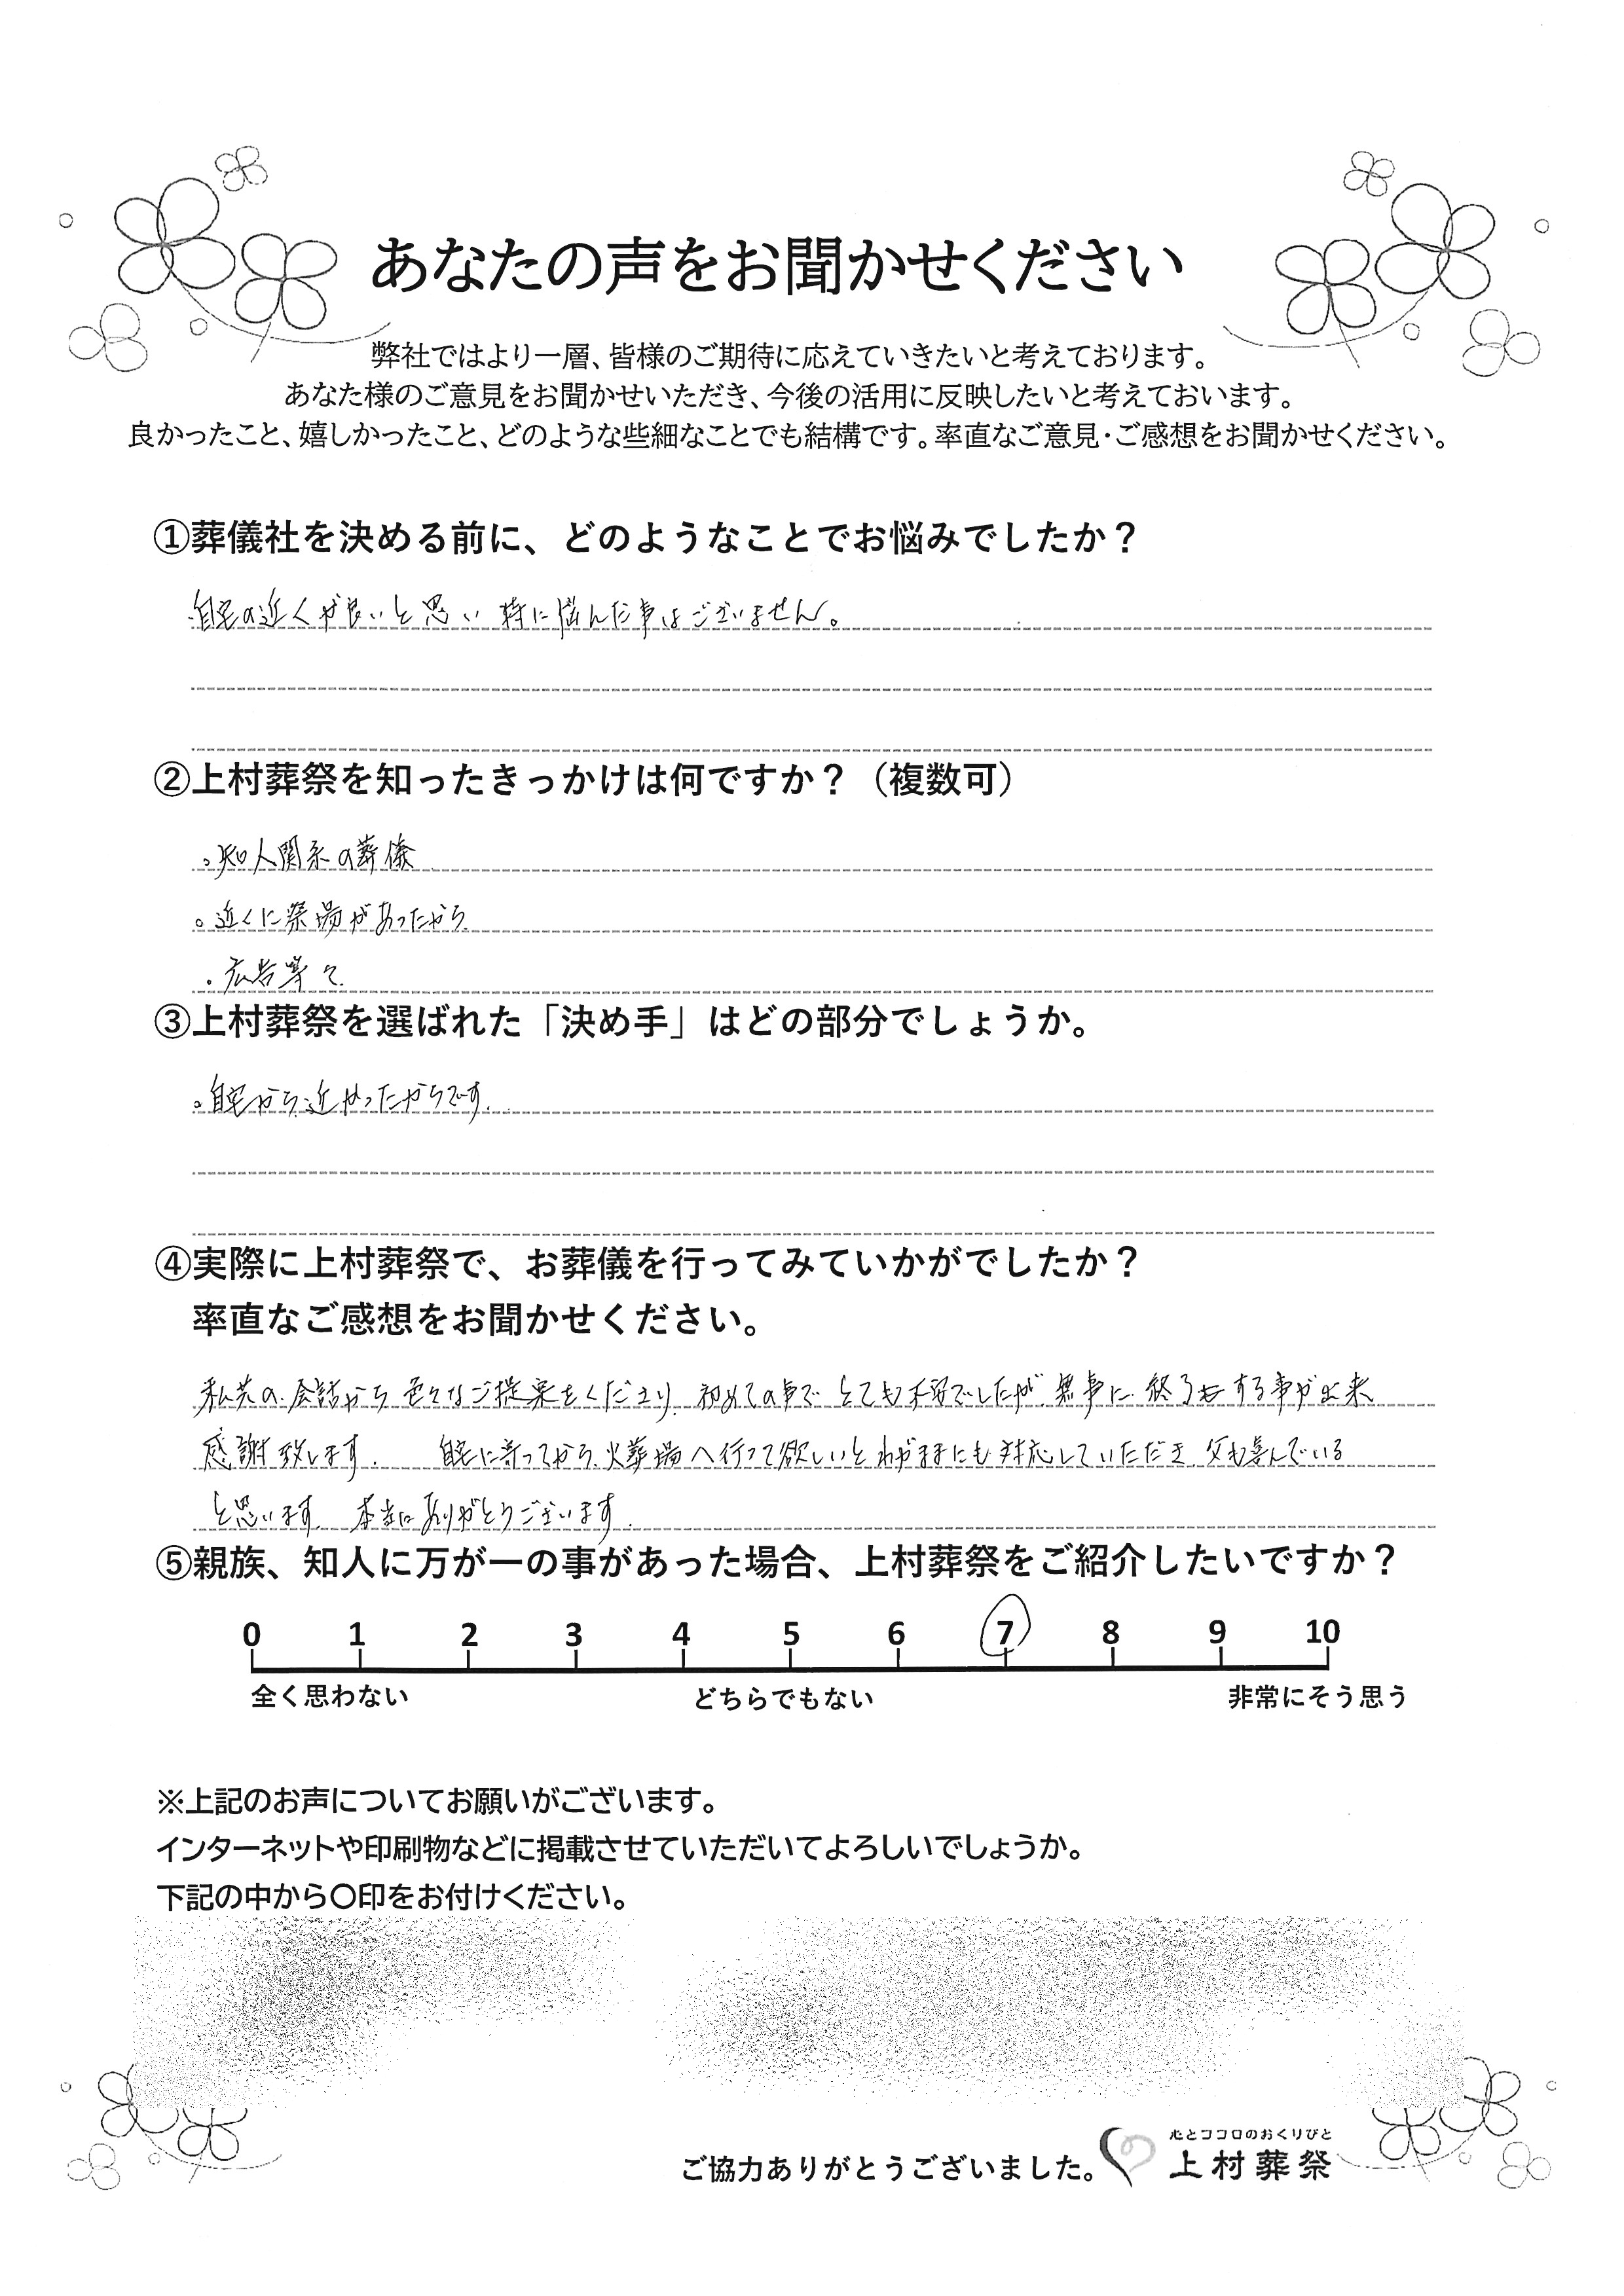 あなたの声をお聞かせください
弊社ではより一層、皆様のご期待に応えていきたいと考えております。
あなた様のご意見をお聞かせいただき、今後の活用に反映したいと考えておいます。
良かったこと、嬉しかったこと、どのような些細なことでも結構です。率直なご意見・ご感想をお聞かせください。
①葬儀社を決める前に、どのようなことでお悩みでしたか？
自宅の近くが良いと思い 特に悩んだ事はございません。
②上村葬祭を知ったきっかけは何ですか？（複数可）
。知人関係の葬儀
。近くに祭場があったから
。広告等々
③上村葬祭を選ばれた「決め手」はどの部分でしょうか。
。自宅から近かったからです。
④実際に上村葬祭で、お葬儀を行ってみていかがでしたか？
率直なご感想をお聞かせください。
私共の会話から 色々なご提案をくださり、初めての事で とても不安でしたが、無事に 終了をする事が出来
感謝致します。 自宅に寄ってから、火葬場へ行って欲しいと わがままにも 対応していただき、父も喜んでいる
と思います。 本当にありがとうございます。
⑤親族、知人に万が一の事があった場合、上村葬祭をご紹介したいですか？
0 1 2 3 4 5 6 7 8 9 10
全く思わない どちらでもない 非常にそう思う
※上記のお声についてお願いがございます。
インターネットや印刷物などに掲載させていただいてよろしいでしょうか。
下記の中から〇印をお付けください。
心とココロのおくりびと
ご協力ありがとうございました。 上村葬祭